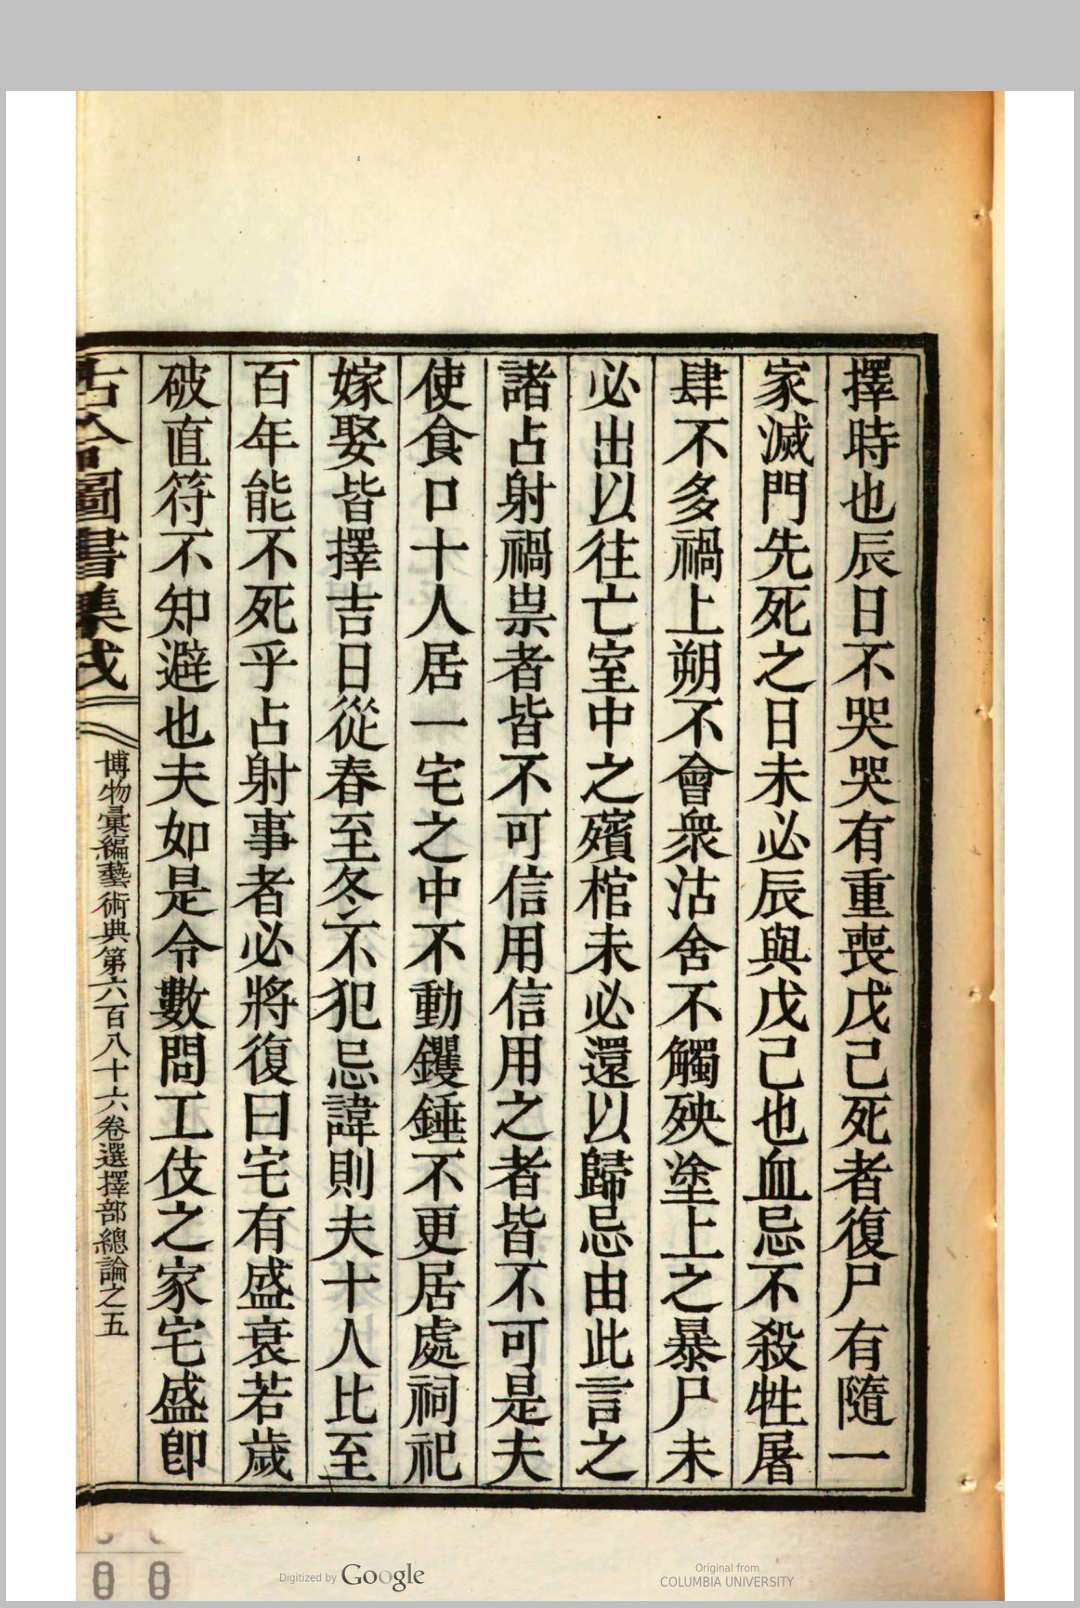 擇時也辰日不哭哭有重喪戊己死者復尸有隨一
家滅門先死之日未必辰與戊己也血忌不殺牲屠
肆不多禍上朔不會衆沽舍不觸殃塗上之暴尸未
必出以往亡室中之殯棺未必還以歸忌由此言之
諸占射禍祟者皆不可信用信用之者皆不可是夫
使食口十人居一宅之中不動钁錘不更居處祠祀
嫁娶皆擇吉日從春至冬不犯忌諱則夫十人比至
百年能不死乎占射事者必將復曰宅有盛衰若歲
破直符不知避也夫如是令數問工伎之家宅盛即
古今圖書集成
博物彙編藝術典第六百八十六卷選擇部總論之五
Digitized by Google
Original from
COLUMBIA UNIVERSITY